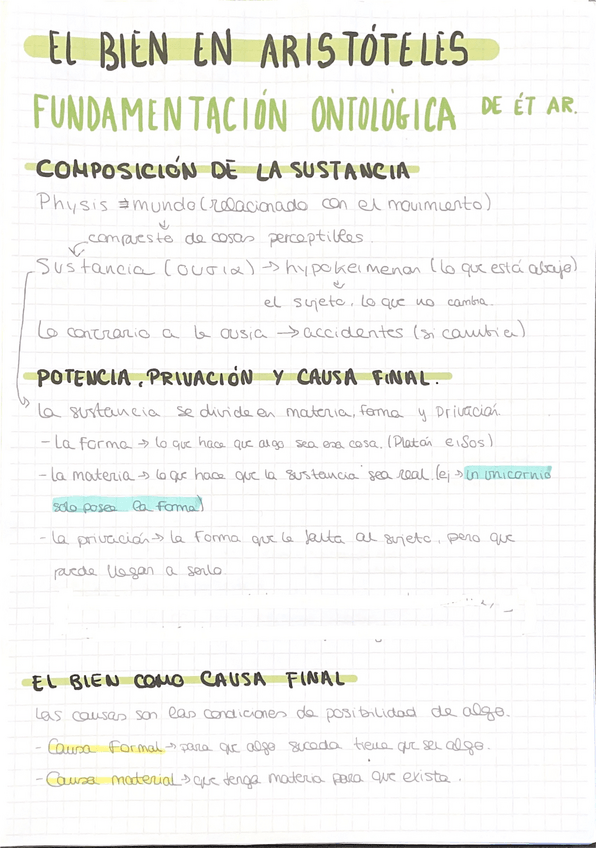 EL BIEN EN ARISTÓTELES
FUNDAMENTACIÓN ONTOLÓGICA DE ÉT AR.
COMPOSICIÓN DE LA SUSTANCIA
Physis = mundo (relacionado con el movimiento)
compuesto de cosas perceptibles.
Sustancia (ουσια) → hypokeimenon (lo que está abajo)
el sujeto, lo que no cambia.
Lo contrario a la ousia → accidentes (si cambia)
POTENCIA, PRIVACIÓN Y CAUSA FINAL.
La sustancia se divide en materia, forma y privación.
- La forma → lo que hace que algo sea esa cosa. (Platón eidos)
- la materia → lo que hace que la sustancia sea real. (ej → un unicornio
solo posee la forma)
- la privación → la forma que le falta al sujeto, pero que
puede llegar a serlo.
EL BIEN COMO CAUSA FINAL
Las causas son las condiciones de posibilidad de algo.
- Causa Formal → para que algo suceda tiene que ser algo.
- Causa material → que tenga materia para que exista.